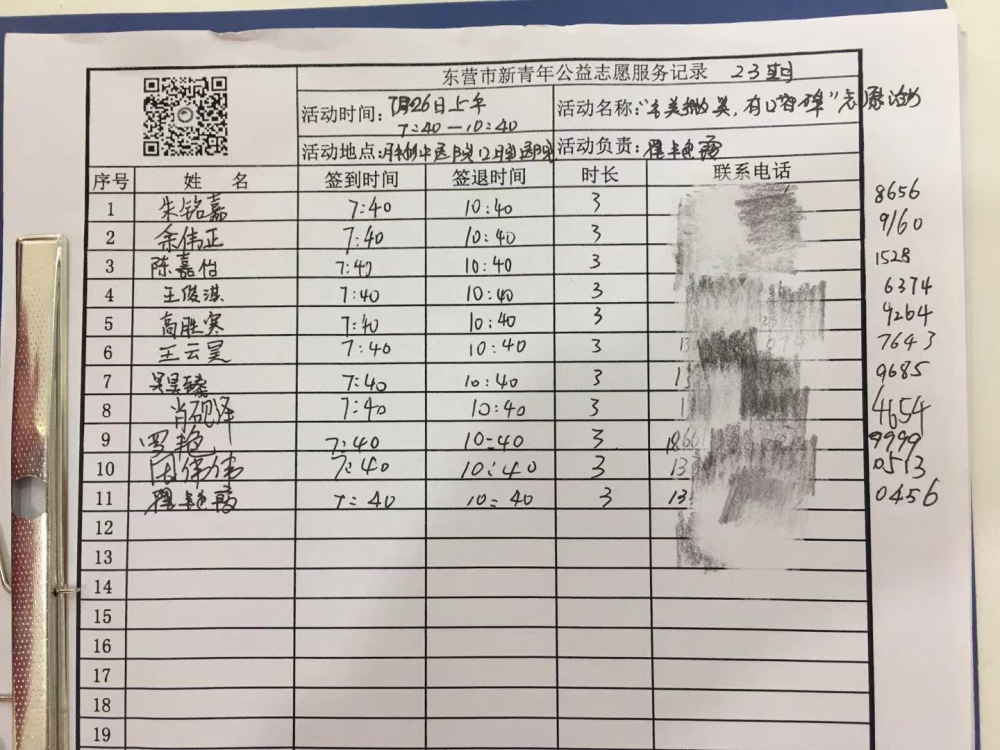 东营市新青年公益志愿服务记录 23
活动时间: 7月26日上午 活动名称:
7:40—10:40
活动地点: 活动负责: 翟艳霞
序号 姓 名 签到时间 签退时间 时长 联系电话
1 朱铭嘉 7:40 10:40 3 8656
2 余伟正 7:40 10:40 3 9160
3 陈嘉怡 7:40 10:40 3 1528
4 王俊淇 7:40 10:40 3 6374
5 高胜寒 7:40 10:40 3 4264
6 王云昊 7:40 10:40 3 13 7643
7 吴昊臻 7:40 10:40 3 13 9685
8 肖砚泽 7:40 10:40 3 1 4654
9 罗艳 7:40 10:40 3 1866 9999
10 伟伟 7:40 10:40 3 13 0513
11 翟艳霞 7:40 10:40 3 13 0456
12
13
14
15
16
17
18
19